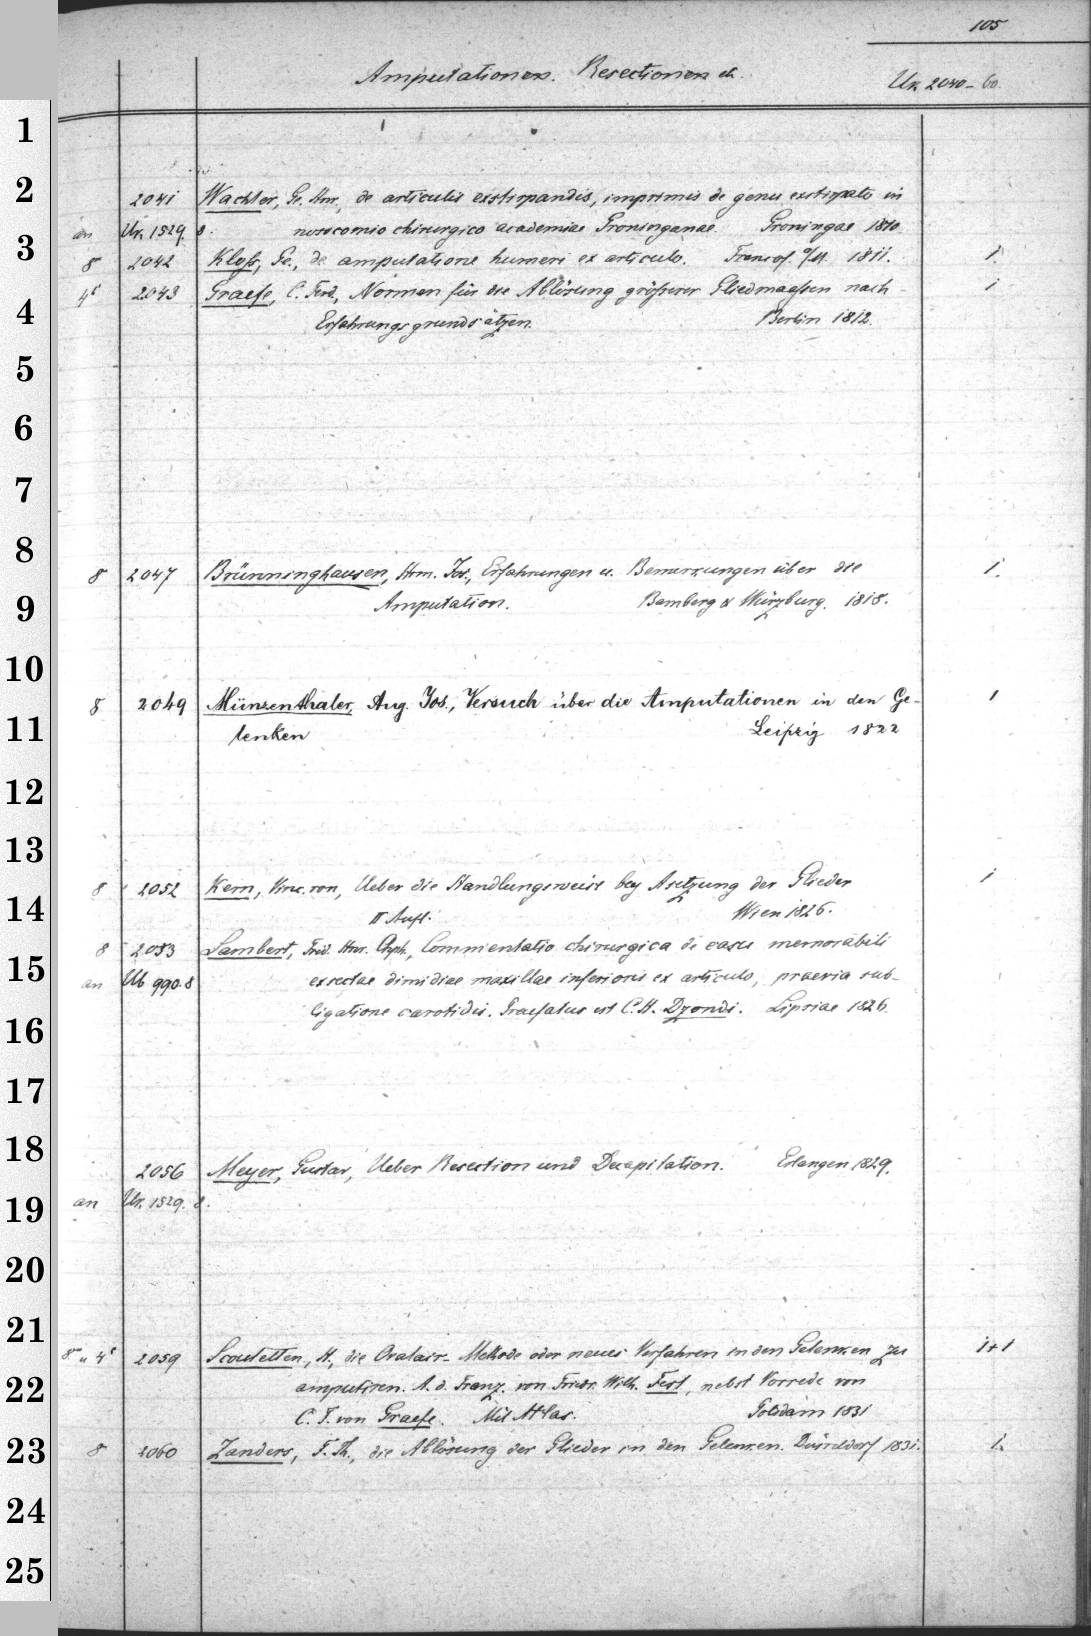 105
Amputationen. Resectionen etc.
Ur. 2040-60.
1
2
3
4
5
6
7
8
9
10
11
12
13
14
15
16
17
18
19
20
21
22
23
24
25
2041 Wachter, Ge. Hnr., de articulis exstirpandis, imprimis de genu exstirpato in
an Ur. 1529. 8. nosocomio chirurgico academiae Groninganae. Groningae 1810.
8 2042 Kloss, Ge., de amputatione humeri ex articulo. Francof. a/M. 1811. 1.
4° 2043 Graefe, C. Ferd., Normen für die Ablösung größerer Gliedmaaßen nach 1
Erfahrungsgrundsätzen. Berlin 1812.
8 2047 Brünninghausen, Hrm. Jos., Erfahrungen u. Bemerkungen über die 1.
Amputation. Bamberg & Würzburg. 1818.
8 2049 Münzenthaler, Aug. Jos., Versuch über die Amputationen in den Ge- 1
lenken Leipzig 1822
8 2052 Kern, Vinc. von, Ueber die Handlungsweise bey Asetzung der Glieder 1
II Aufl. Wien 1826.
8 2053 Lambert, Frid. Hnr. Chph., Commentatio chirurgica de casu memorabili
an Ub 990. 8 exsectae dimidiae maxillae inferioris ex articulo, praevia sub-
ligatione carotidis. Praefatus est C. H. Dzondi. Lipsiae 1826.
2056 Meyer, Gustav, Ueber Resection und Decapitation. Erlangen 1829.
an Ur. 1529. 8.
8° u 4° 2059 Scoutetten, H., die Ovalair-Methode oder neues Verfahren in den Gelenken zu 1+1
amputiren. A. d. Franz. von Friedr. Wilh. Fest, nebst Vorrede von
C. F. von Graefe. Mit Atlas. Potsdam 1831
8 2060 Zanders, F. Th., die Ablösung der Glieder in den Gelenken. Düsseldorf 1831. 1.